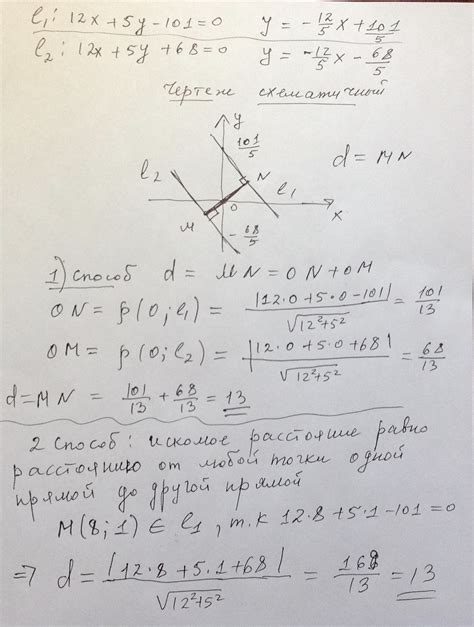 l₁: 12x + 5y - 101 = 0   y = -12/5 x + 101/5
l₂: 12x + 5y + 68 = 0   y = -12/5 x - 68/5
Чертеж схематичный
y
101/5
l₂
N
d = MN
l₁
M
0
x
-68/5
1) способ   d = MN = ON + OM
ON = ρ(0; l₁) = |12·0 + 5·0 - 101| / √(12² + 5²) = 101/13
OM = ρ(0; l₂) = |12·0 + 5·0 + 68| / √(12² + 5²) = 68/13
d = MN = 101/13 + 68/13 = 13
2 способ: искомое расстояние равно
расстоянию от любой точки одной
прямой до другой прямой
M(8; 1) ∈ l₁, т.к 12·8 + 5·1 - 101 = 0
⇒ d = |12·8 + 5·1 + 68| / √(12² + 5²) = 169/13 = 13